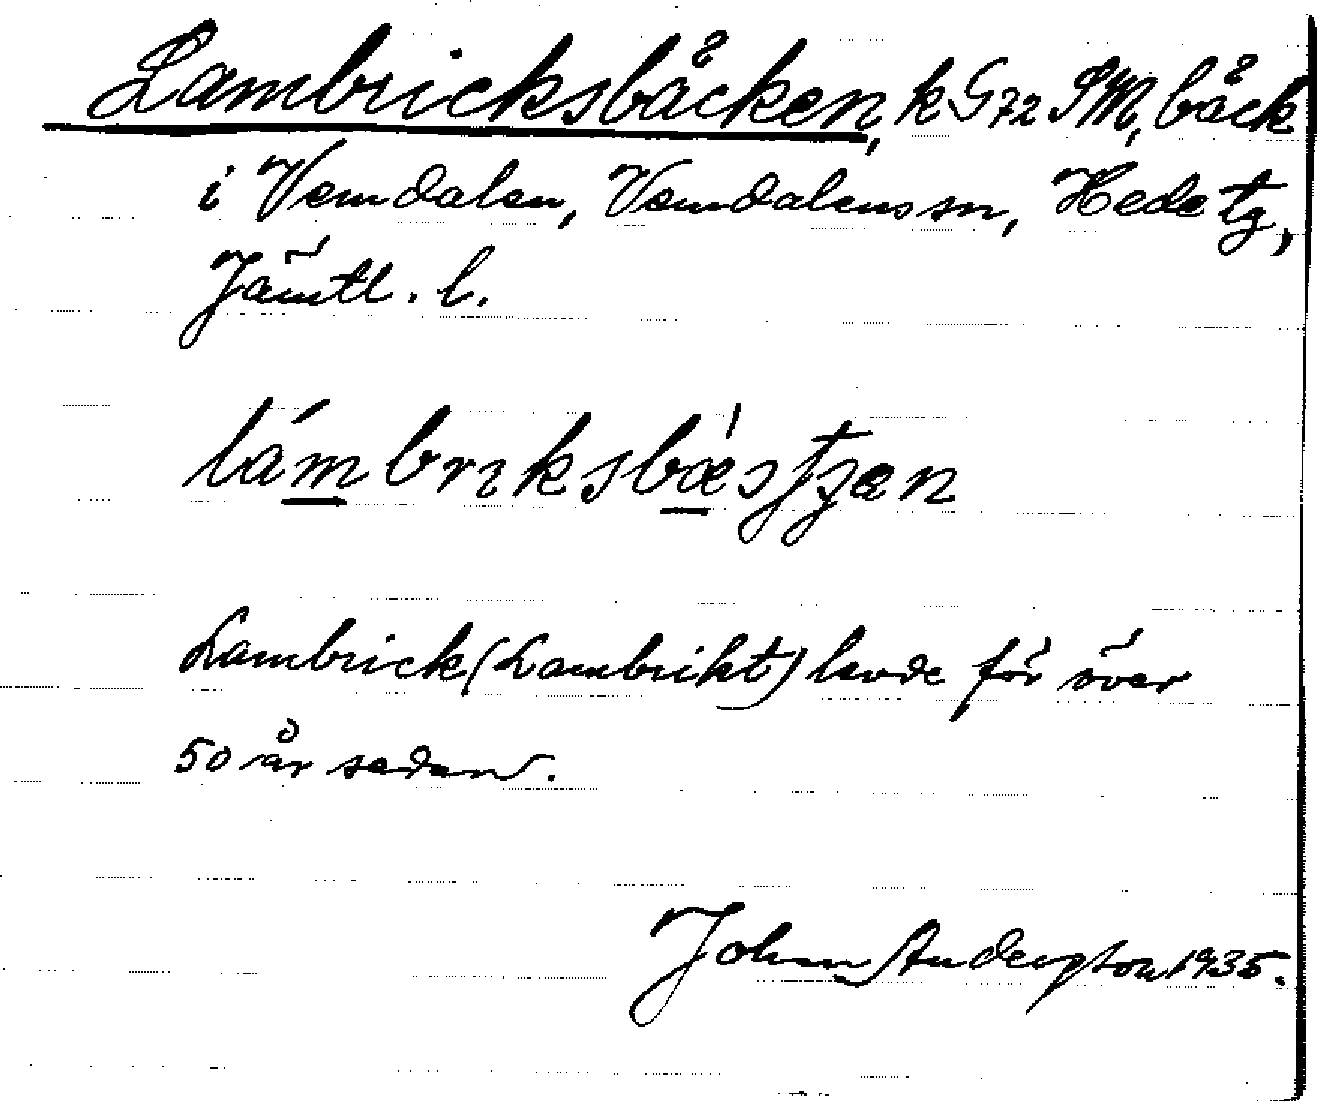 Lambricksbäcken, k G72 SM, bäck
i Vemdalen, Vemdalens sn, Hede tg,
Jämtl. l.
Lambrick (Lambrikt) levde för över
50 år sedan.
John Andersson 1935.